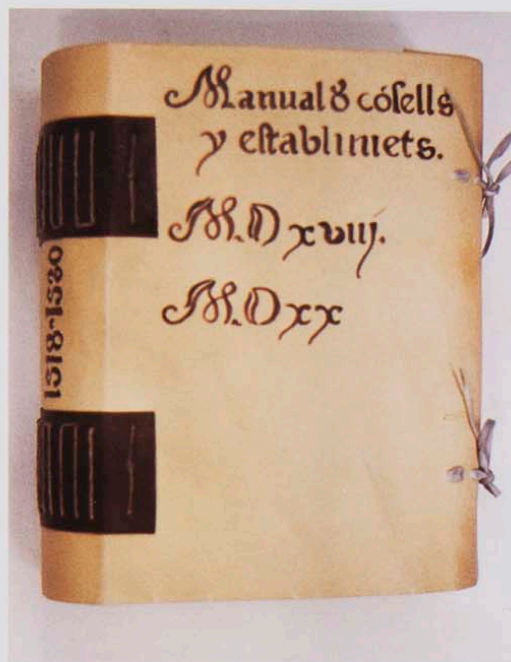 Manual ꝺ cóſells
y eſtablimẽts.
M.D xviij.
M.D xx
1518-1520